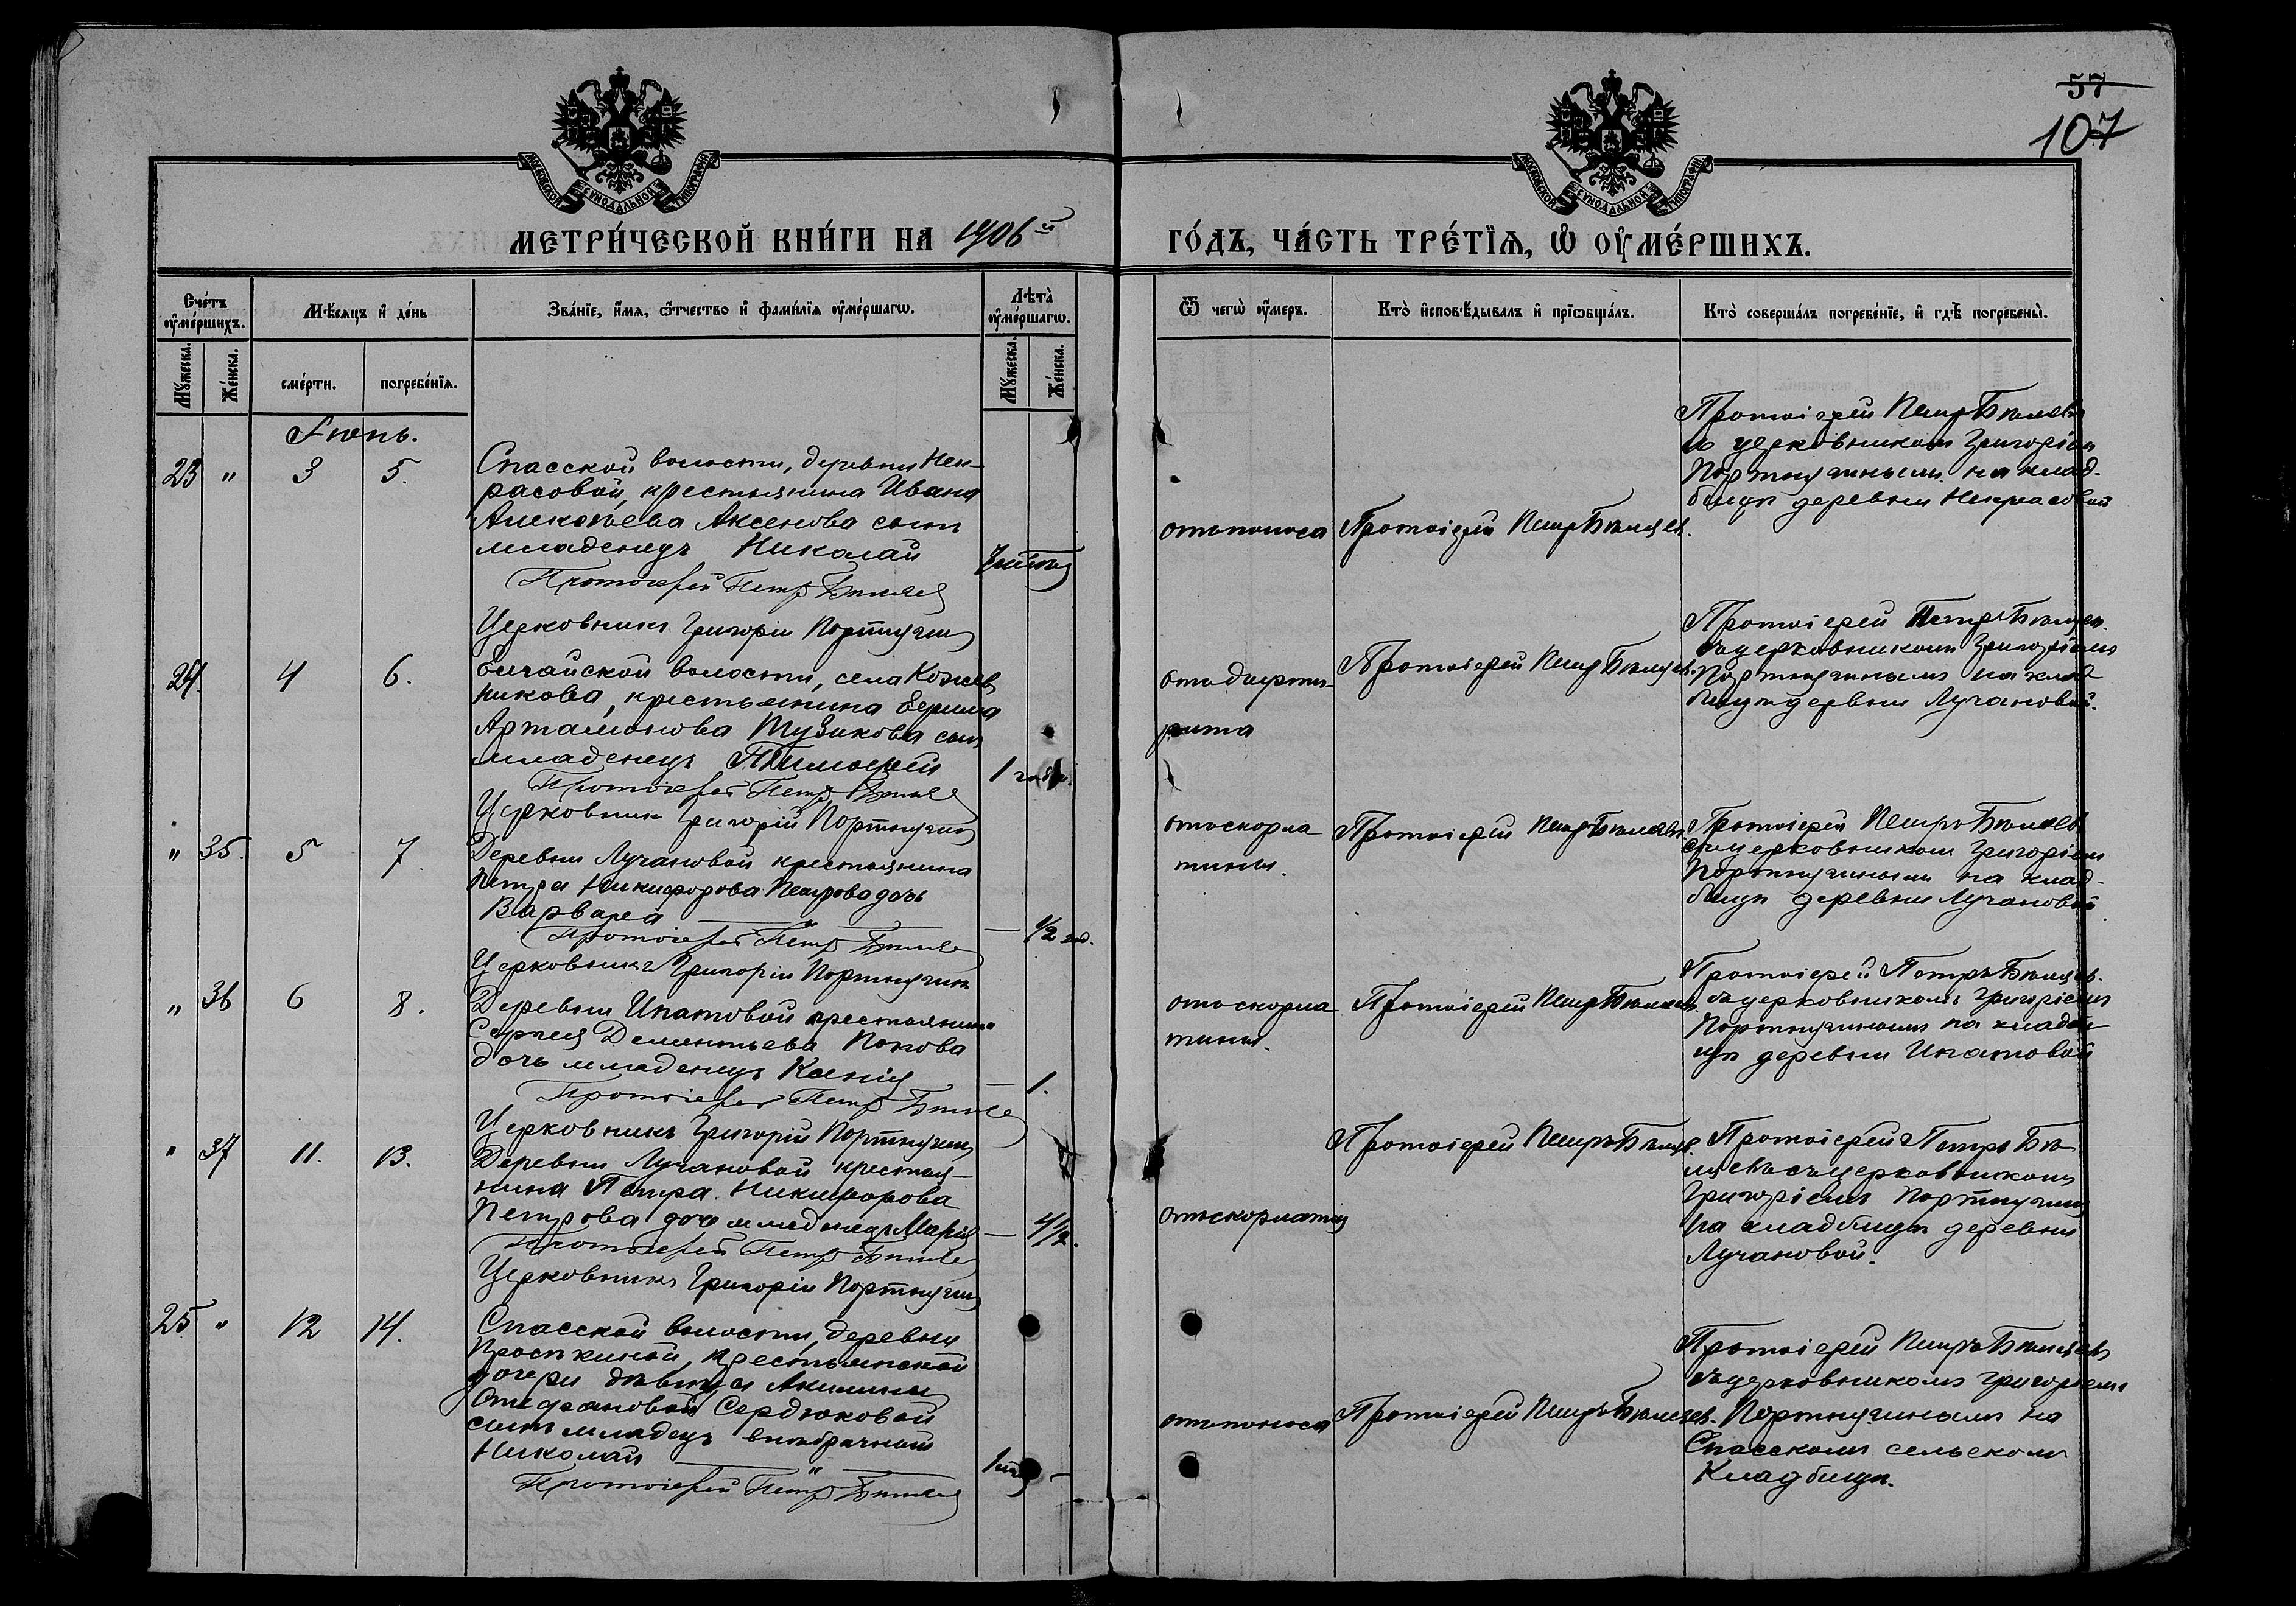 57
107
МОСКОВСКОЙ СѴНОДАЛЬНОЙ ТИПОГРАФІИ
МОСКОВСКОЙ СѴНОДАЛЬНОЙ ТИПОГРАФІИ
МЕТРИ́ЧЕСКОЙ КНИ́ГИ НА 1906й
ГО́ДЪ, ЧА́СТЬ ТРЕ́ТІѦ, Ѡ ОУ҆МЕ́РШИХЪ.
Сче́тъ оу҆ме́ршихъ.
Мѣ́сяцъ и҆ де́нь
Зва́нїе, и҆́мя, ѻ҆́тчество и҆ фами́лїя оу҆ме́ршагѡ.
Лѣ́та оу҆ме́ршагѡ.
Ѿ чегѡ̀ оу҆́меръ.
Кто̀ и҆сповѣ́дывалъ и҆ прїѻбща́лъ.
Кто̀ соверша́лъ погребе́нїе, и҆ гдѣ̀ погребены̀.
Мꙋ́жеска.
Же́нска.
сме́рти.
погребе́нїя.
Мꙋ́жеска.
Же́нска.
Іюнь.
23 " 3 5.
Спасской волости, деревни Нек-
расовой, крестьянина Ивана
Алексѣева Аксенова сынъ
младенецъ Николай
Протоіерей Петръ Бѣляев
Церковникъ Григорій Портнягин
отъ поноса
Протоіерей Петръ Бѣляевъ.
Протоіерей Петръ Бѣляевъ
съ церковникомъ Григоріемъ
Портнягинымъ на клад-
бищѣ деревни Некрасовой
24. 4 6.
волости, села Кожев
никова, крестьянина
Артамонова Тузикова сынъ
младенецъ Тимофей
1 года.
Протоіерей Петръ Бѣляев
Церковникъ Григорій Портнягин
отъ дифте-
рита
Протоіерей Петръ Бѣляевъ.
Протоіерей Петръ Бѣляев.
съ церковникомъ Григоріемъ
Портнягинымъ на клад
бищѣ деревни Лучановой.
" 35. 5 7.
Деревни Лучановой крестьянина
Петра Никифорова Петрова дочь
Варвара — " —
— 1/2 год.
Протоіерей Петръ Бѣляев
Церковникъ Григорій Портнягин
отъ скорла
тины.
Протоіерей Петръ Бѣляевъ.
Протоіерей Петръ Бѣляевъ
съ церковникомъ Григоріемъ
Портнягинымъ на клад-
бищѣ деревни Лучановой.
" 36 6 8.
Деревни Ипатовой крестьянина
Сергея Дементьева Попова
дочь младенецъ Ксенія
— 1.
Протоіерей Петръ Бѣляев
Церковникъ Григорій Портнягин
отъ скорла
тины.
Протоіерей Петръ Бѣляевъ.
Протоіерей Петръ Бѣляевъ.
съ церковникомъ Григоріемъ
Портнягинымъ на кладби
щѣ деревни Ипатовой
" 37 11. 13.
Деревни Лучановой крестья-
нина Петра Никифорова
Петрова дочь младенецъ Марія
— 4 1/2.
Протоіерей Петръ Бѣляев
Церковникъ Григорій Портнягин
отъ скорлатины
Протоіерей Петръ Бѣляев.
Протоіерей Петръ Бѣ
ляевъ съ церковникомъ
Григоріемъ Портнягинымъ
на кладбищѣ деревни
Лучановой.
25 " 12 14.
Спасской волости, деревни
Проскиной, крестьянской
дочери дѣвицы Акилины
Стефановой Сердюковой
сынъ младецъ внѣбрачный
Николай — " —
Протоіерей Петръ Бѣляев
отъ поноса
Протоіерей Петръ Бѣляевъ.
Протоіерей Петръ Бѣляевъ
съ церковникомъ Григоріемъ
Портнягинымъ на
Спасскомъ сельскомъ
Кладбищѣ.